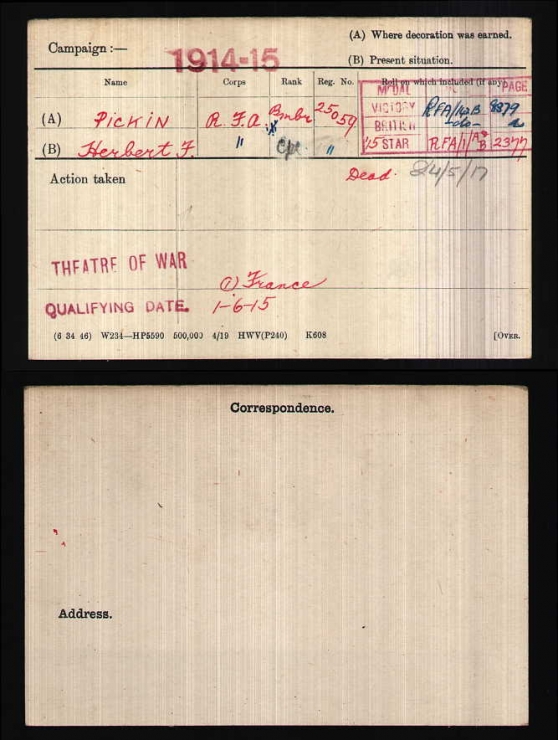 (A) Where decoration was earned.
Campaign :— 1914-15
(B) Present situation.
Name Corps Rank Reg. No. Roll on which included (if any)
MEDAL PAGE
(A) PICKIN R.F.A Bmbr 25059 VICTORY RFA/142B 8879
BRITISH -do- do
(B) Herbert F. " Cpl " 15 STAR RFA/1/A&B 2377
Action taken Dead. 24/5/17
THEATRE OF WAR
(1) France
QUALIFYING DATE. 1-6-15
(6 34 46) W234—HP5590 500,000 4/19 HWV(P240) K608 [OVER.
Correspondence.
Address.